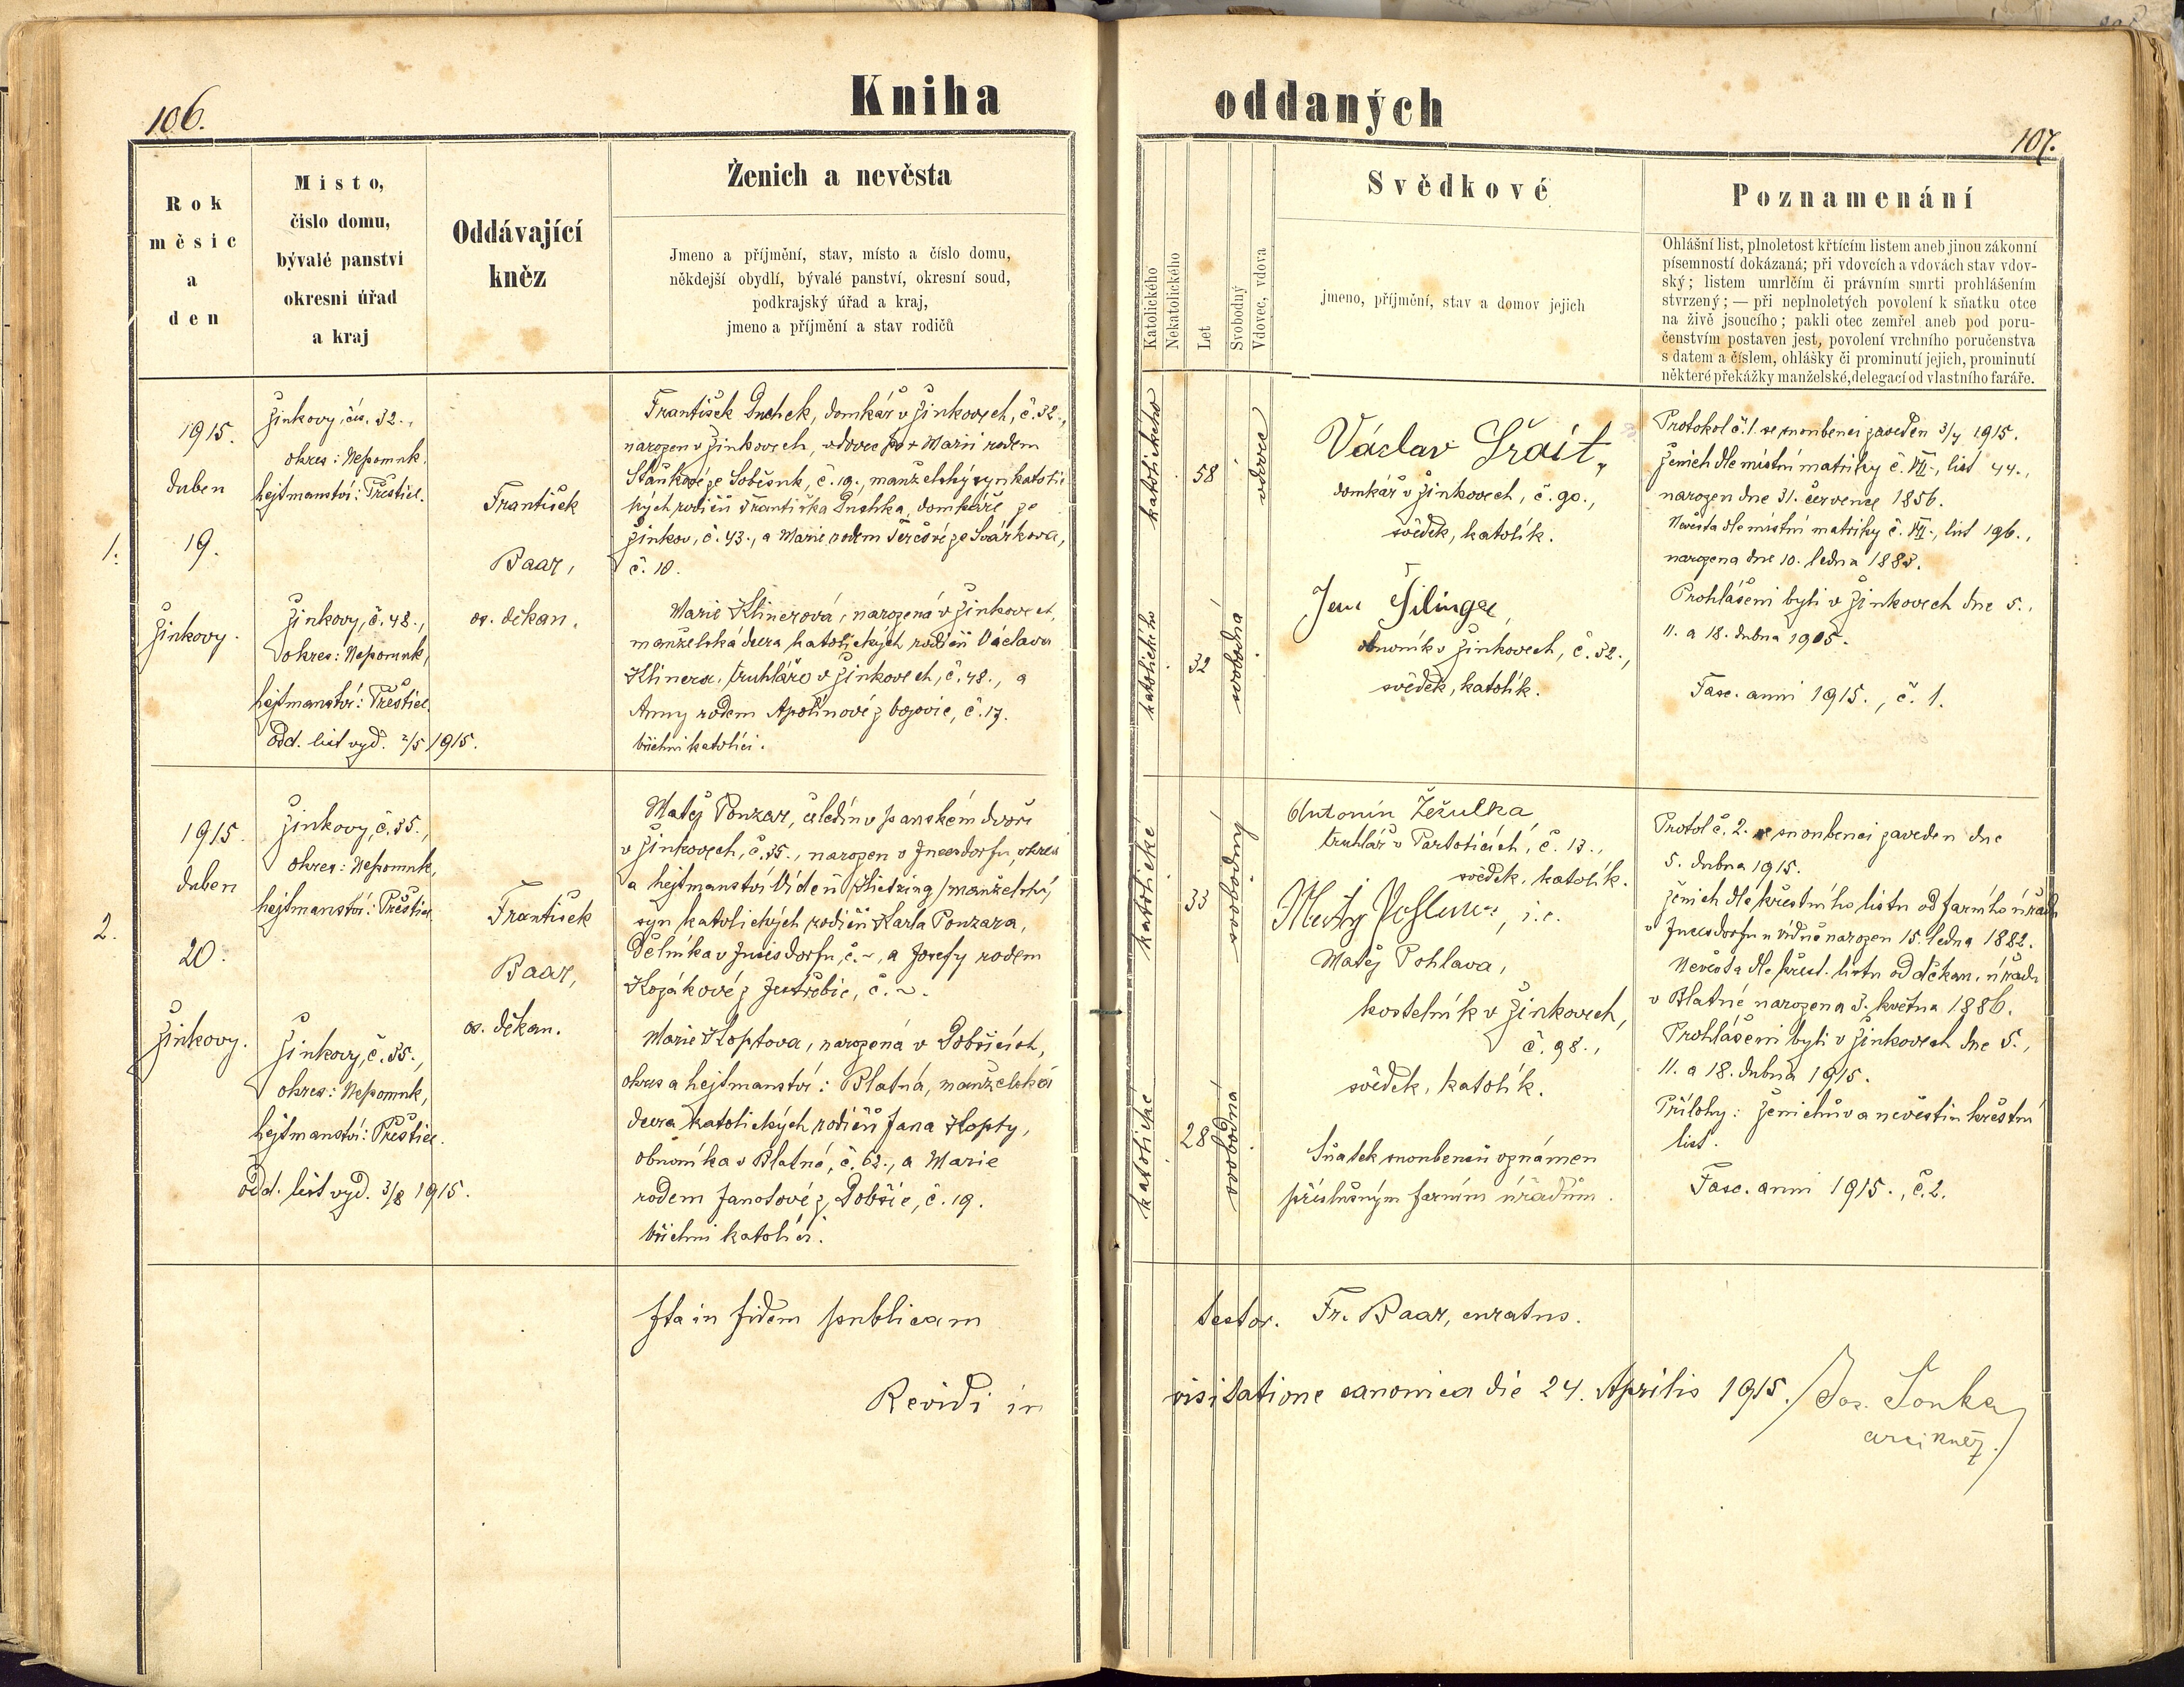 106.
Kniha
Rok
měsíc
a
den
Místo,
číslo domu,
bývalé panství
okresní úřad
a kraj
Oddávající
kněz
Ženich a nevěsta
Jmeno a příjmění, stav, místo a číslo domu,
někdejší obydlí, bývalé panství, okresní soud,
podkrajský úřad a kraj,
jmeno a příjmění a stav rodičů
1.
1915.
duben
19.
Žinkovy.
Žinkovy, čís. 32.,
okres: Nepomuk,
hejtmanství: Přeštice.
Žinkovy, č. 48.,
okres: Nepomuk,
hejtmanství: Přeštice.
odd. list vyd. 2/5 1915.
František
Baar,
os. děkan.
František Duchek, domkář v Žinkovech, č. 32.,
narozen v Žinkovech, vdovec po + Marii rodem
Staňkové ze Soběsuk, č. 19., manželský syn katoli
ckých rodičů Františka Duchka, domkáře ze
Žinkov, č. 43., a Marie rodem Terešové ze Svárkova,
č. 10.
Marie Klinerová, narozená v Žinkovech,
manželská dcera katolických rodičů Václava
Klinera, truhláře v Žinkovech, č. 48., a
Anny rodem Apolínové z bojovic, č. 17.
všichni katolíci.
2.
1915.
duben
20.
Žinkovy.
Žinkovy, č. 35.,
okres: Nepomuk,
hejtmanství: Přeštice
Žinkovy, č. 35.,
okres: Nepomuk,
hejtmanství: Přeštice.
odd. list vyd. 3/8 1915.
František
Baar,
os. děkan.
Matěj Ponzar, čeledín v panském dvoře
v Žinkovech, č. 35., narozen v Inzersdorfu, okres
a hejtmanství Vídeň /Hietzing/ manželský
syn katolických rodičů Karla Ponzara,
dělníka v Inzersdorfu, č. ~, a Josefy rodem
Kozákové z Jestřebic, č. ~.
Marie Kloptova, narozená v Dobšicích,
okres a hejtmanství: Blatná, manželská
dcera katolických rodičů Jana Klopty,
obuvníka v Blatné, č. 62., a Marie
rodem Janotové z Dobšic, č. 19.
všichni katolíci.
Ita in fidem publicam
Revidi in
oddaných
107.
Katolického
Nekatolického
Let
Svobodný
Vdovec, vdova
Svědkové
jmeno, příjmění, stav a domov jejich
Poznamenání
Ohlášní list, plnoletost křtícím listem aneb jinou zákonní
písemností dokázaná; při vdovcích a vdovách stav vdov-
ský; listem umrlčím či právním smrti prohlášením
stvrzený; — při neplnoletých povolení k sňatku otce
na živě jsoucího; pakli otec zemřel aneb pod poru-
čenstvím postaven jest, povolení vrchního poručenstva
s datem a číslem, ohlášky či prominutí jejich, prominutí
některé překážky manželské, delegací od vlastního faráře.
katolického
58
vdovec
katolického
32
svobodná
Václav Šrait,
domkář v Žinkovech, č. 90.,
svědek, katolík.
Jan Šilinger,
obuvník v Žinkovech, č. 32.,
svědek, katolík.
Protokol č. 1. se snoubenci zaveden 3/4 1915.
Ženich dle místní matriky č. VII., list 44.,
narozen dne 31. července 1856.
Nevěsta dle místní matriky č. VII., list 196.,
narozena dne 10. ledna 1883.
Prohlášeni byli v Žinkovech dne 5.,
11. a 18. dubna 1915.
Fasc. anni 1915., č. 1.
katolické
33
svobodný
katolické
28
svobodná
Antonín Žežulka,
truhlář v Partoticích, č. 13.,
svědek, katolík.
Matěj Pohlava, i. e.
Matěj Pohlava,
kostelník v Žinkovech,
č. 98.,
svědek, katolík.
Sňatek snoubenců oznámen
příslušným farním úřadům.
Protol č. 2. se snoubenci zaveden dne
5. dubna 1915.
Ženich dle křestního listu od farního úřadu
v Inzersdorfu u Vídně narozen 15. ledna 1882.
Nevěsta dle křest. listu od děkan. úřadu
v Blatné narozena 3. května 1886.
Prohlášeni byli v Žinkovech dne 5.,
11. a 18. dubna 1915.
Přílohy: Ženichův a nevěstin křestní
list.
Fasc. anni 1915., č. 2.
testor. Fr. Baar, curatus.
visitatione canonica die 24. Aprilis 1915. Jos. Šonka
arcikněz.